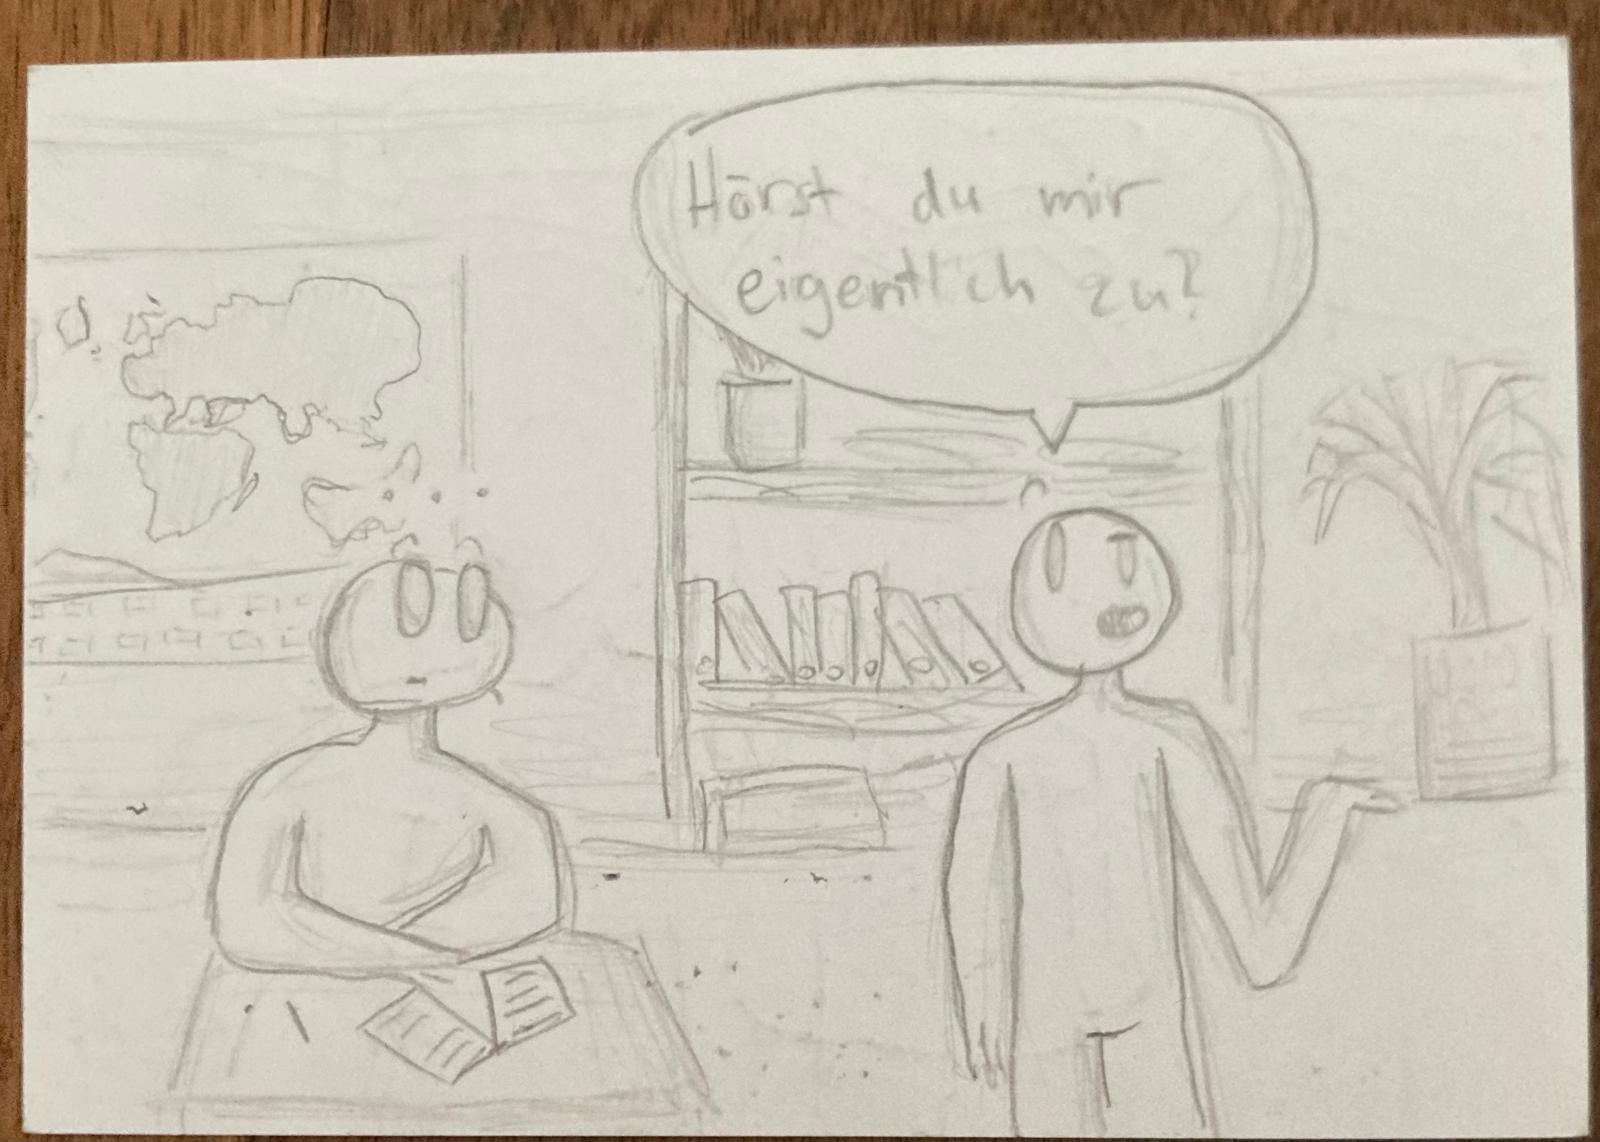 Hörst du mir
eigentlich zu?